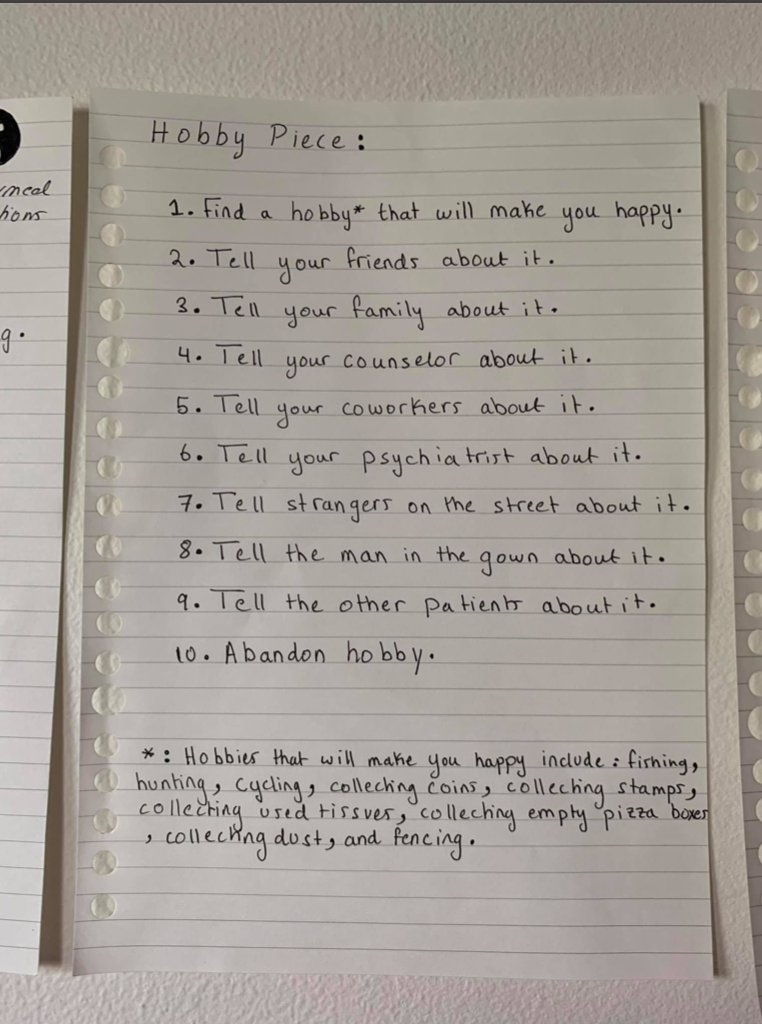 meal
tions
g.
Hobby Piece:
1. Find a hobby* that will make you happy.
2. Tell your friends about it.
3. Tell your family about it.
4. Tell your counselor about it.
5. Tell your coworkers about it.
6. Tell your psychiatrist about it.
7. Tell strangers on the street about it.
8. Tell the man in the gown about it.
9. Tell the other patients about it.
10. Abandon hobby.
*: Hobbies that will make you happy include: fishing,
hunting, cycling, collecting coins, collecting stamps,
collecting used tissues, collecting empty pizza boxes
, collecting dust, and fencing.